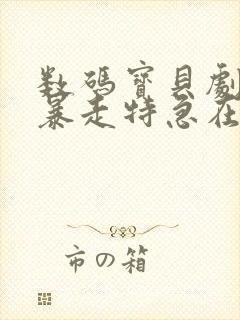 数碼寶貝劇
暴走特急在
市の箱